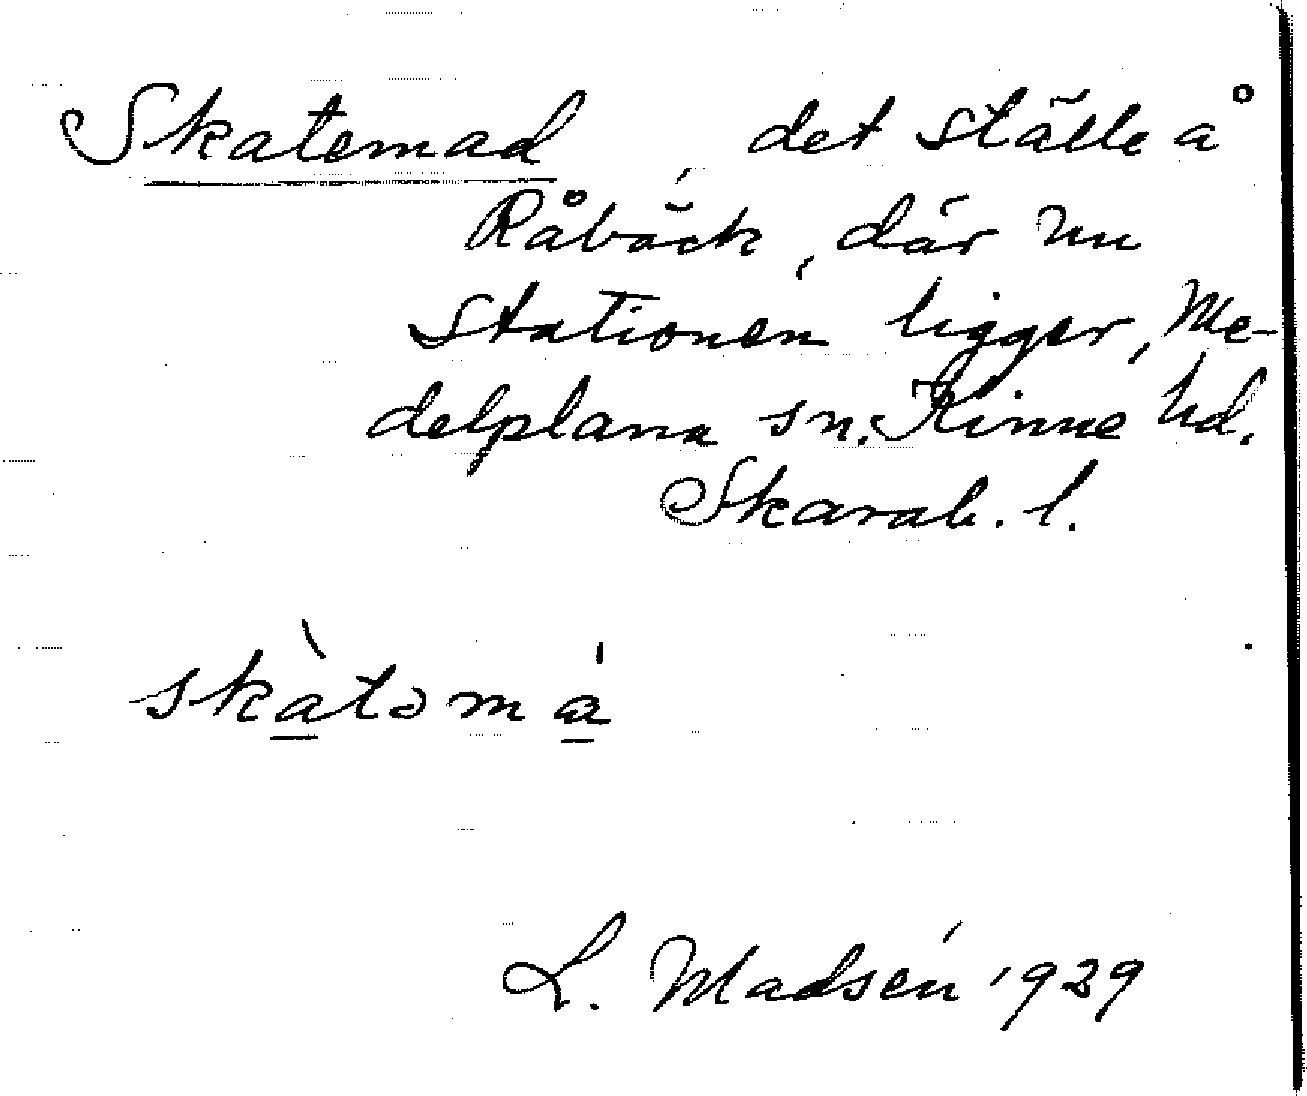 Skatemad, det ställe å
Råbäck, där nu
stationen ligger, Me-
delplana sn. Kinne hd.
Skarab. l.
skàtəmá
L. Madsén 1929